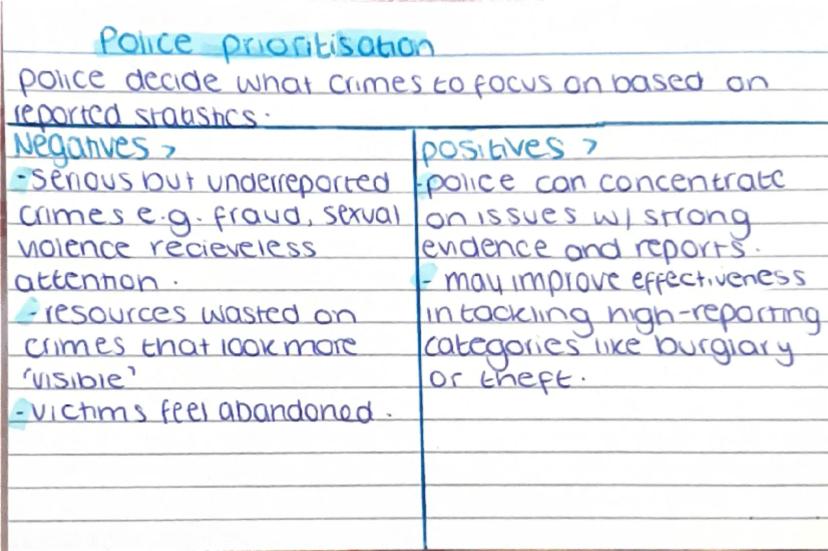 Police prioritisation
police decide what crimes to focus on based on
reported statistics.
Negatives >
- serious but underreported
crimes e.g. fraud, sexual
violence recieveless
attention.
- resources wasted on
crimes that look more
'visible'
- victims feel abandoned.
positives >
- police can concentrate
on issues w/ strong
evidence and reports.
- may improve effectiveness
in tackling high-reporting
categories like burglary
or theft.